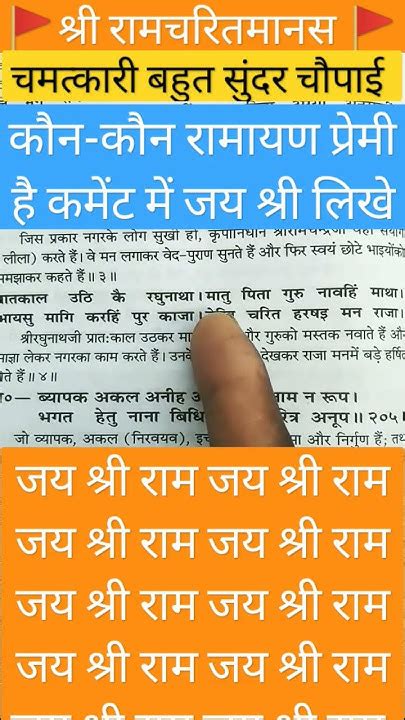 श्री रामचरितमानस
चमत्कारी बहुत सुंदर चौपाई
कौन-कौन रामायण प्रेमी
है कमेंट में जय श्री लिखे
जिस प्रकार नगरके लोग सुखी हों,
लीला) करते हैं। वे मन लगाकर वेद-पुराण सुनते हैं और फिर स्वयं छोटे भाइयोंको
मझाकर कहते हैं॥ ३॥
ातकाल उठि कै रघुनाथा। मातु पिता गुरु नावहिं माथा।
ायसु मागि करहिं पुर काजा। चरित हरषइ मन राजा।
श्रीरघुनाथजी प्रातःकाल उठकर मा और गुरुको मस्तक नवाते हैं और
ाज्ञा लेकर नगरका काम करते हैं। उनके देखकर राजा मनमें बड़े हर्षित
ते हैं॥ ४॥
०— ब्यापक अकल अनीह ाम न रूप।
भगत हेतु नाना बिधि त्र अनूप॥ २०५
जो व्यापक, अकल (निरवयव), इच् और निर्गुण हैं; तथ
जय श्री राम जय श्री राम
जय श्री राम जय श्री राम
जय श्री राम जय श्री राम
जय श्री राम जय श्री राम
जय श्री राम जय श्री राम